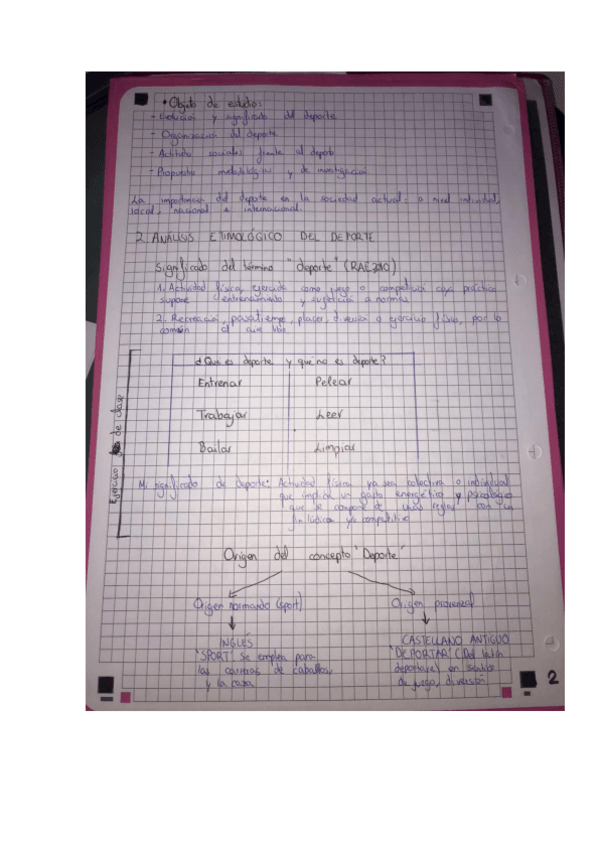 • Objeto de estudio:
- Evolución y significado del deporte
- Organización del deporte
- Actitudes sociales frente al deporte
- Propuestas metodológicas y de investigación
La importancia del deporte en la sociedad actual: a nivel individual,
local, nacional e internacional.
2. ANÁLISIS ETIMOLÓGICO DEL DEPORTE
Significado del término "deporte" (RAE)
1. Actividad física, ejercida como juego o competición cuya práctica
supone entrenamiento y sujeción a normas
2. Recreación, pasatiempo, placer, diversión o ejercicio físico, por lo
común al aire libre
Ejercicio de clase
¿Que es deporte y que no es deporte?
Entrenar Pelear
Trabajar Leer
Bailar Limpiar
Mi significado de deporte: Actividad física ya sea colectiva o individual
que implica un gasto energético y psicológico
que se compone de unas reglas con un
fin lúdico y/o competitivo
Origen del concepto "Deporte"
Origen normando (sport) Origen provenzal
INGLÉS
"SPORT" se emplea para
las carreras de caballos
y la caza
CASTELLANO ANTIGUO
"DEPORTAR" (Del latín
deportare) en sentido
de juego, diversión
2